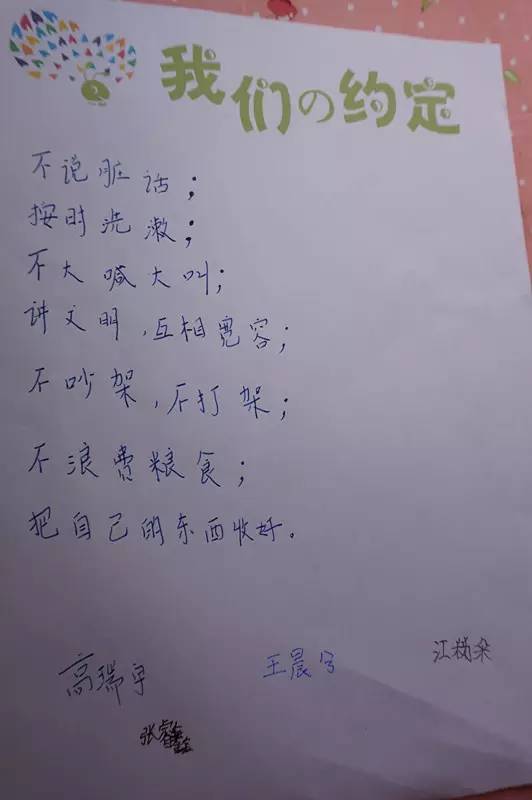 我们の约定
不说脏话；
按时洗漱；
不大喊大叫；
讲文明，互相宽容；
不吵架，不打架；
不浪费粮食；
把自己的东西收好。
高瑞宇
王晨
江
张睿